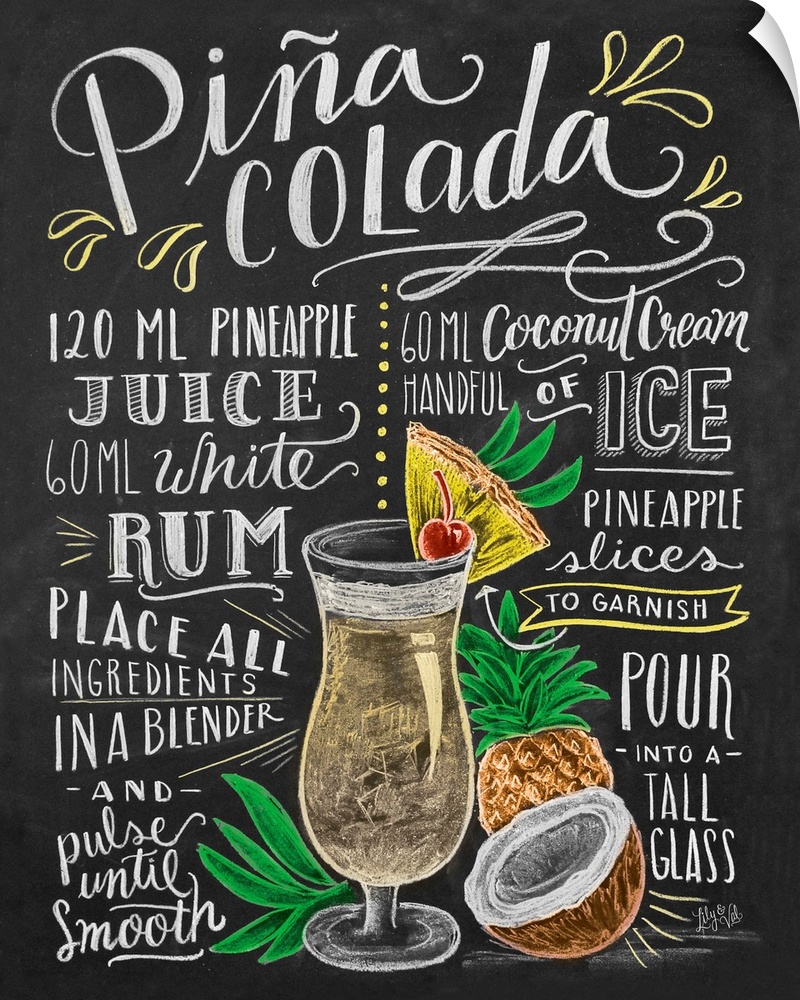 Piña
COLada
120 ML PINEAPPLE
JUICE
60ML White
RUM
PLACE ALL
INGREDIENTS
IN A BLENDER
-AND-
pulse
until
Smooth
60ML Coconut Cream
HANDFUL OF ICE
PINEAPPLE
slices
TO GARNISH
POUR
-INTO A-
TALL
GLASS
Lily & Val